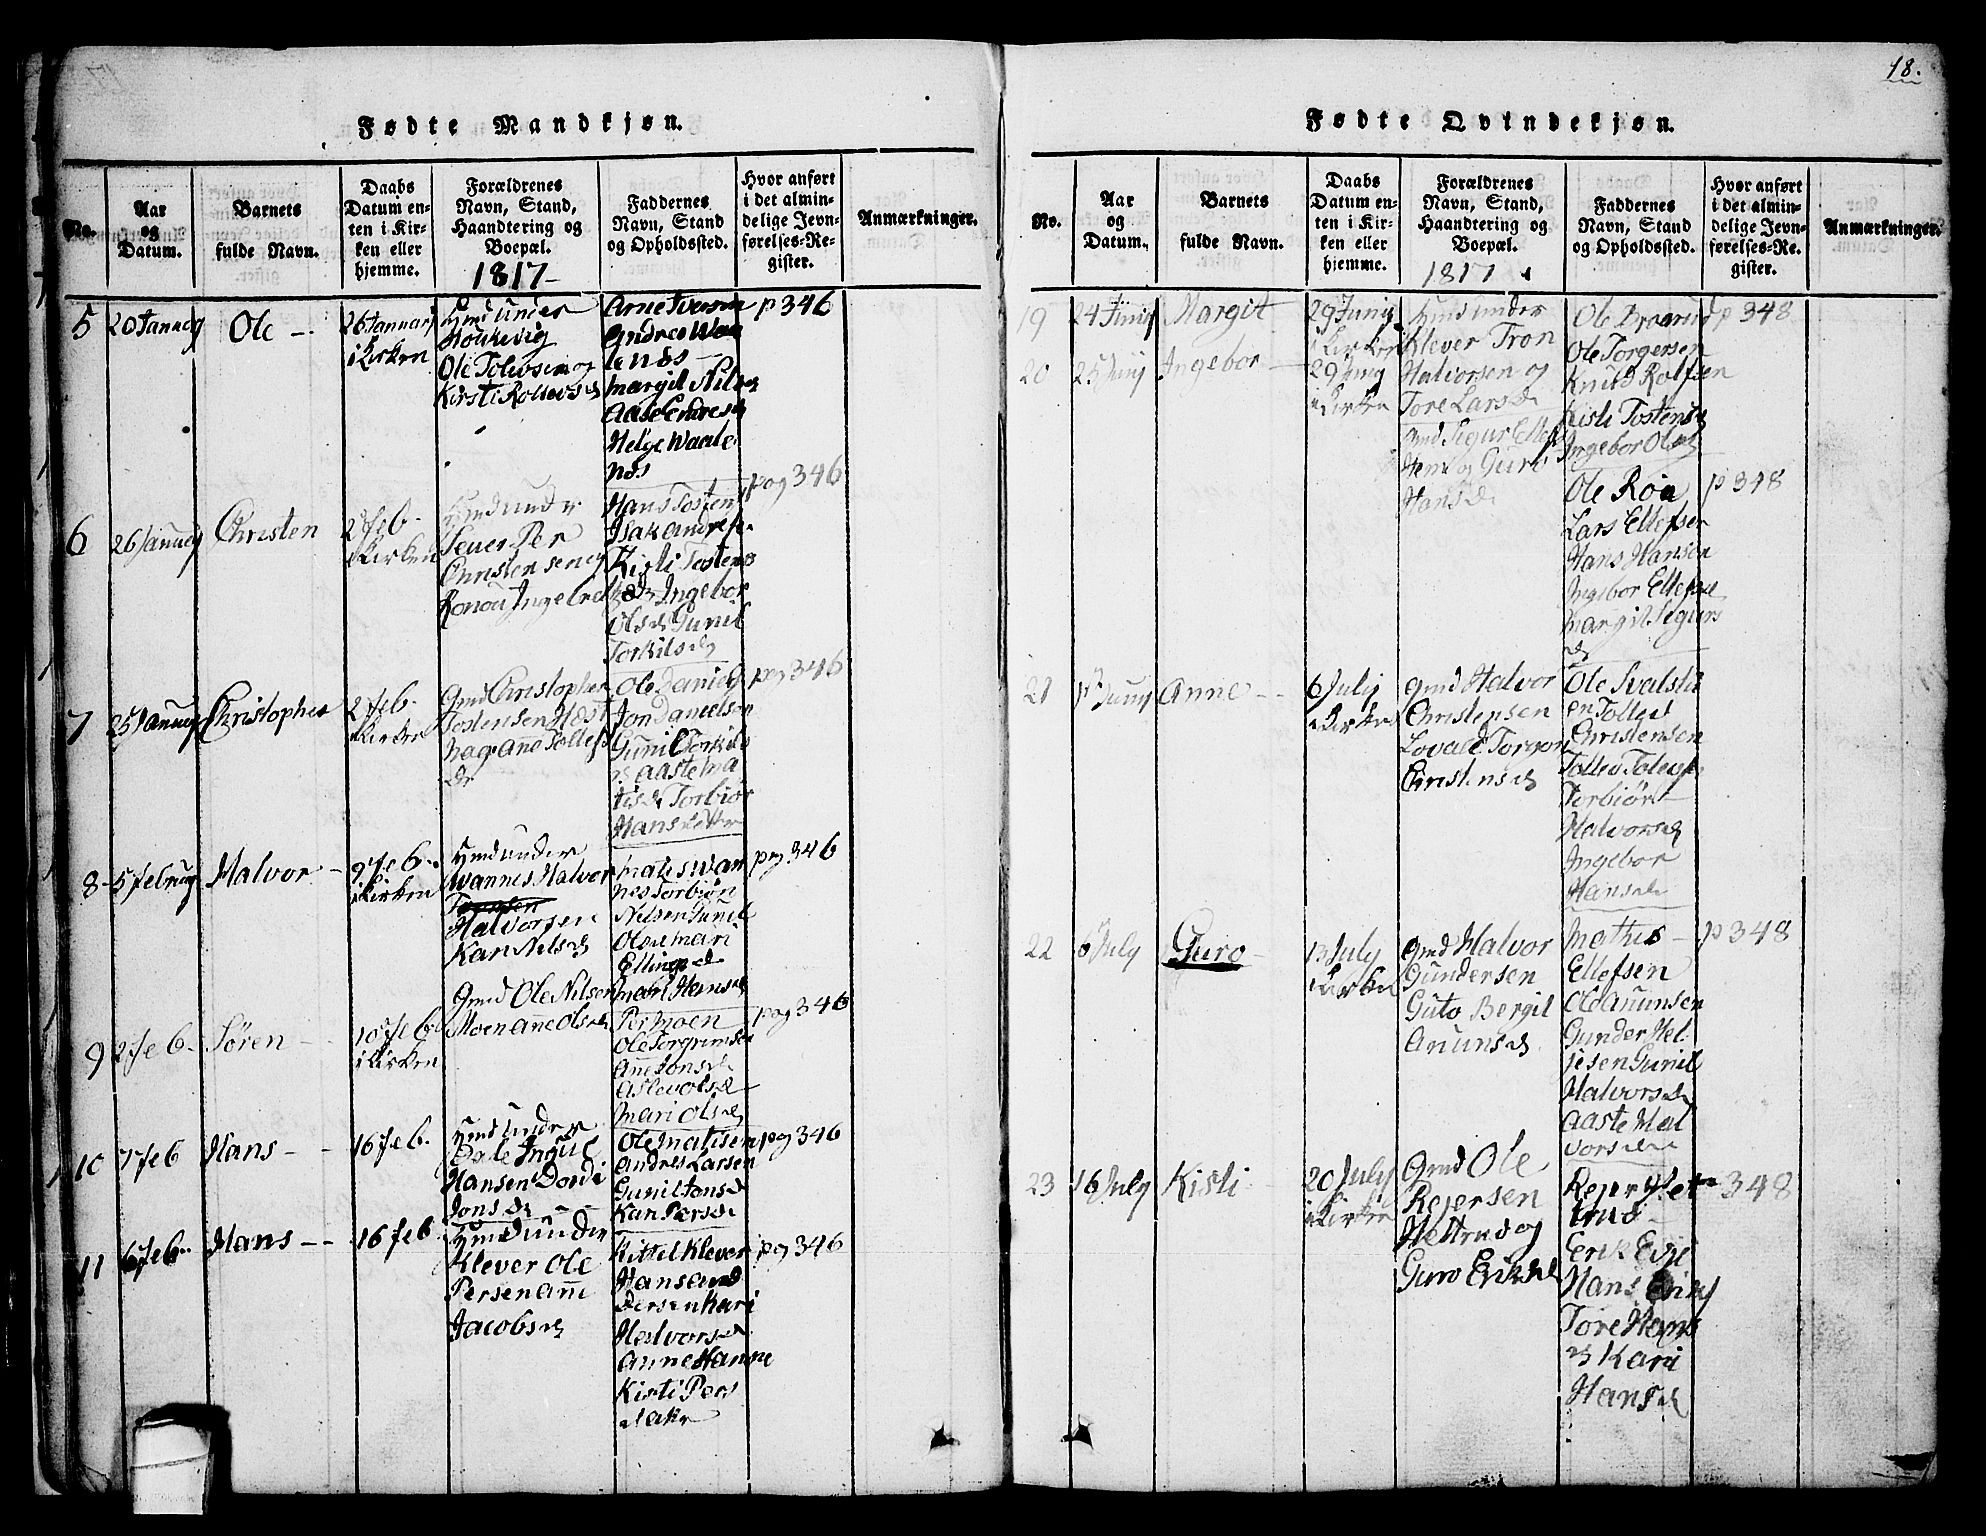 18.
Fødte Mandkjøn.
No.
Aar
og
Datum.
Barnets
fulde Navn.
Daabs
Datum en-
ten i Kir-
ken eller
hjemme.
Forældrenes
Navn, Stand,
Haandtering og
Boepæl.
1817
Faddernes
Navn, Stand
og Opholdssted.
Hvor anført
i det almin-
delige Jevn-
førelses-Re-
gister.
Anmærkninger.
5
20 Januarj
Ole
26 Januarj
i Kirken
Hmd under
Holkevig
Ole Tolevsen og
Kirsti Rollevsd
Arne Iversen
Andres Waa
lenæs
Margit Nils
Aase Endresd
Helge Waale
næs
p 346
6
26 Januarj
Christen
2 feb
i Kirken
Hmd under
Per
Christensen og
Hans Tosten
Isak Andres
Kisti Tostens
Ingebor
Olsd Gunil
Torkilsd
pag 346
7
25 Januarj
Christopher
2 feb
i Kirken
Gmd Christopher
Tostensen
Anne Tollefs
d
Ole Daniels
Jon Danielsen
Gunil Torkils
d Aaste Ma
tisd Torbiør
Hans
pag 346
8
5 februarj
Halvor
9 feb
i Kirken
Hmd under
Wannes Halvor
Halvorsen
Kari Nilsd
Mates Wan
nes Torbiøn
Nilsen Gunil
Olsd Mari
Ellingsd
Mari Hansd
pag 346
9
2 feb
Søren
10 feb
i Kirken
Gmd Ole Nilsen
Moen Anne Olsd
Per Moen
Ole Torgrimsen
Anne Jonsd
Aslev Olsd
Mari Olsd
pag 346
10
7 feb
Hans
16 feb.
Hmd under
Dale Ingul
Hansen Dordi
Jonsd
Ole Matisen
Andres Larsen
Gunil Jonsd
Kari Persd
pag 346
11
6 feb.
Hans
16 feb.
Hmd under
Klever Ole
Persen Anne
Jacobsd
Kittel Klever
Hans And
dersen Kari
Halvorsd
Anne Hanne
Kisti Pers
pag 346
Fødte Qvindekjøn.
No.
Aar
og
Datum.
Barnets
fulde Navn.
Daabs
Datum en-
ten i Kir-
ken eller
hjemme.
Forældrenes
Navn, Stand,
Haandtering og
Boepæl.
1817
Faddernes
Navn, Stand
og Opholdssted.
Hvor anført
i det almin-
delige Jevn-
førelses-Re-
gister.
Anmærkninger.
19
24 Junij
Margit
29 Junij
i Kirken
Hmd under
Klever Tron
Halvorsen og
Tore Larsd
Ole Braarud
Ole Torgersen
Knud Rolfsen
Kisti Tostensd
Ingebor Olsd
p 348
20
25 Junij
Ingebor
29 Junij
i Kirken
Gmd Sigur Ellef
sen og Guro
Hansd
Ole Roa
Lars Ellefsen
Hans Hansen
Ingebor Ellefsd
Margit Sigurs
d
p 348
21
Junij
Anne
6 Julij
i Kirken
Gmd Halvor
Christensen
Lovald Torgon
Christensd
Ole Svalsti
en Tollef
Christensen
Tollev Tolevs
Torbiør
Halvorsd
Ingebor
Hansd
22
6 July
Guro
13 July
i Kirken
Gmd Halvor
Gundersen
Guto Bergit
Anunsd
Mathis
Ellefsen
Ole Anunsen
Gunder Hel
jesen Gunil
Halvorsd
Aaste Hal
vorsd
p 348
23
16 July
Kisti
20 July
i Kirken
Gmd Ole
Rejersen
Hettrud og
Guro Eriksd
Rejer Het
trud
Erik Evje
Hans
Tore Hans
d Kari
Hansd
348